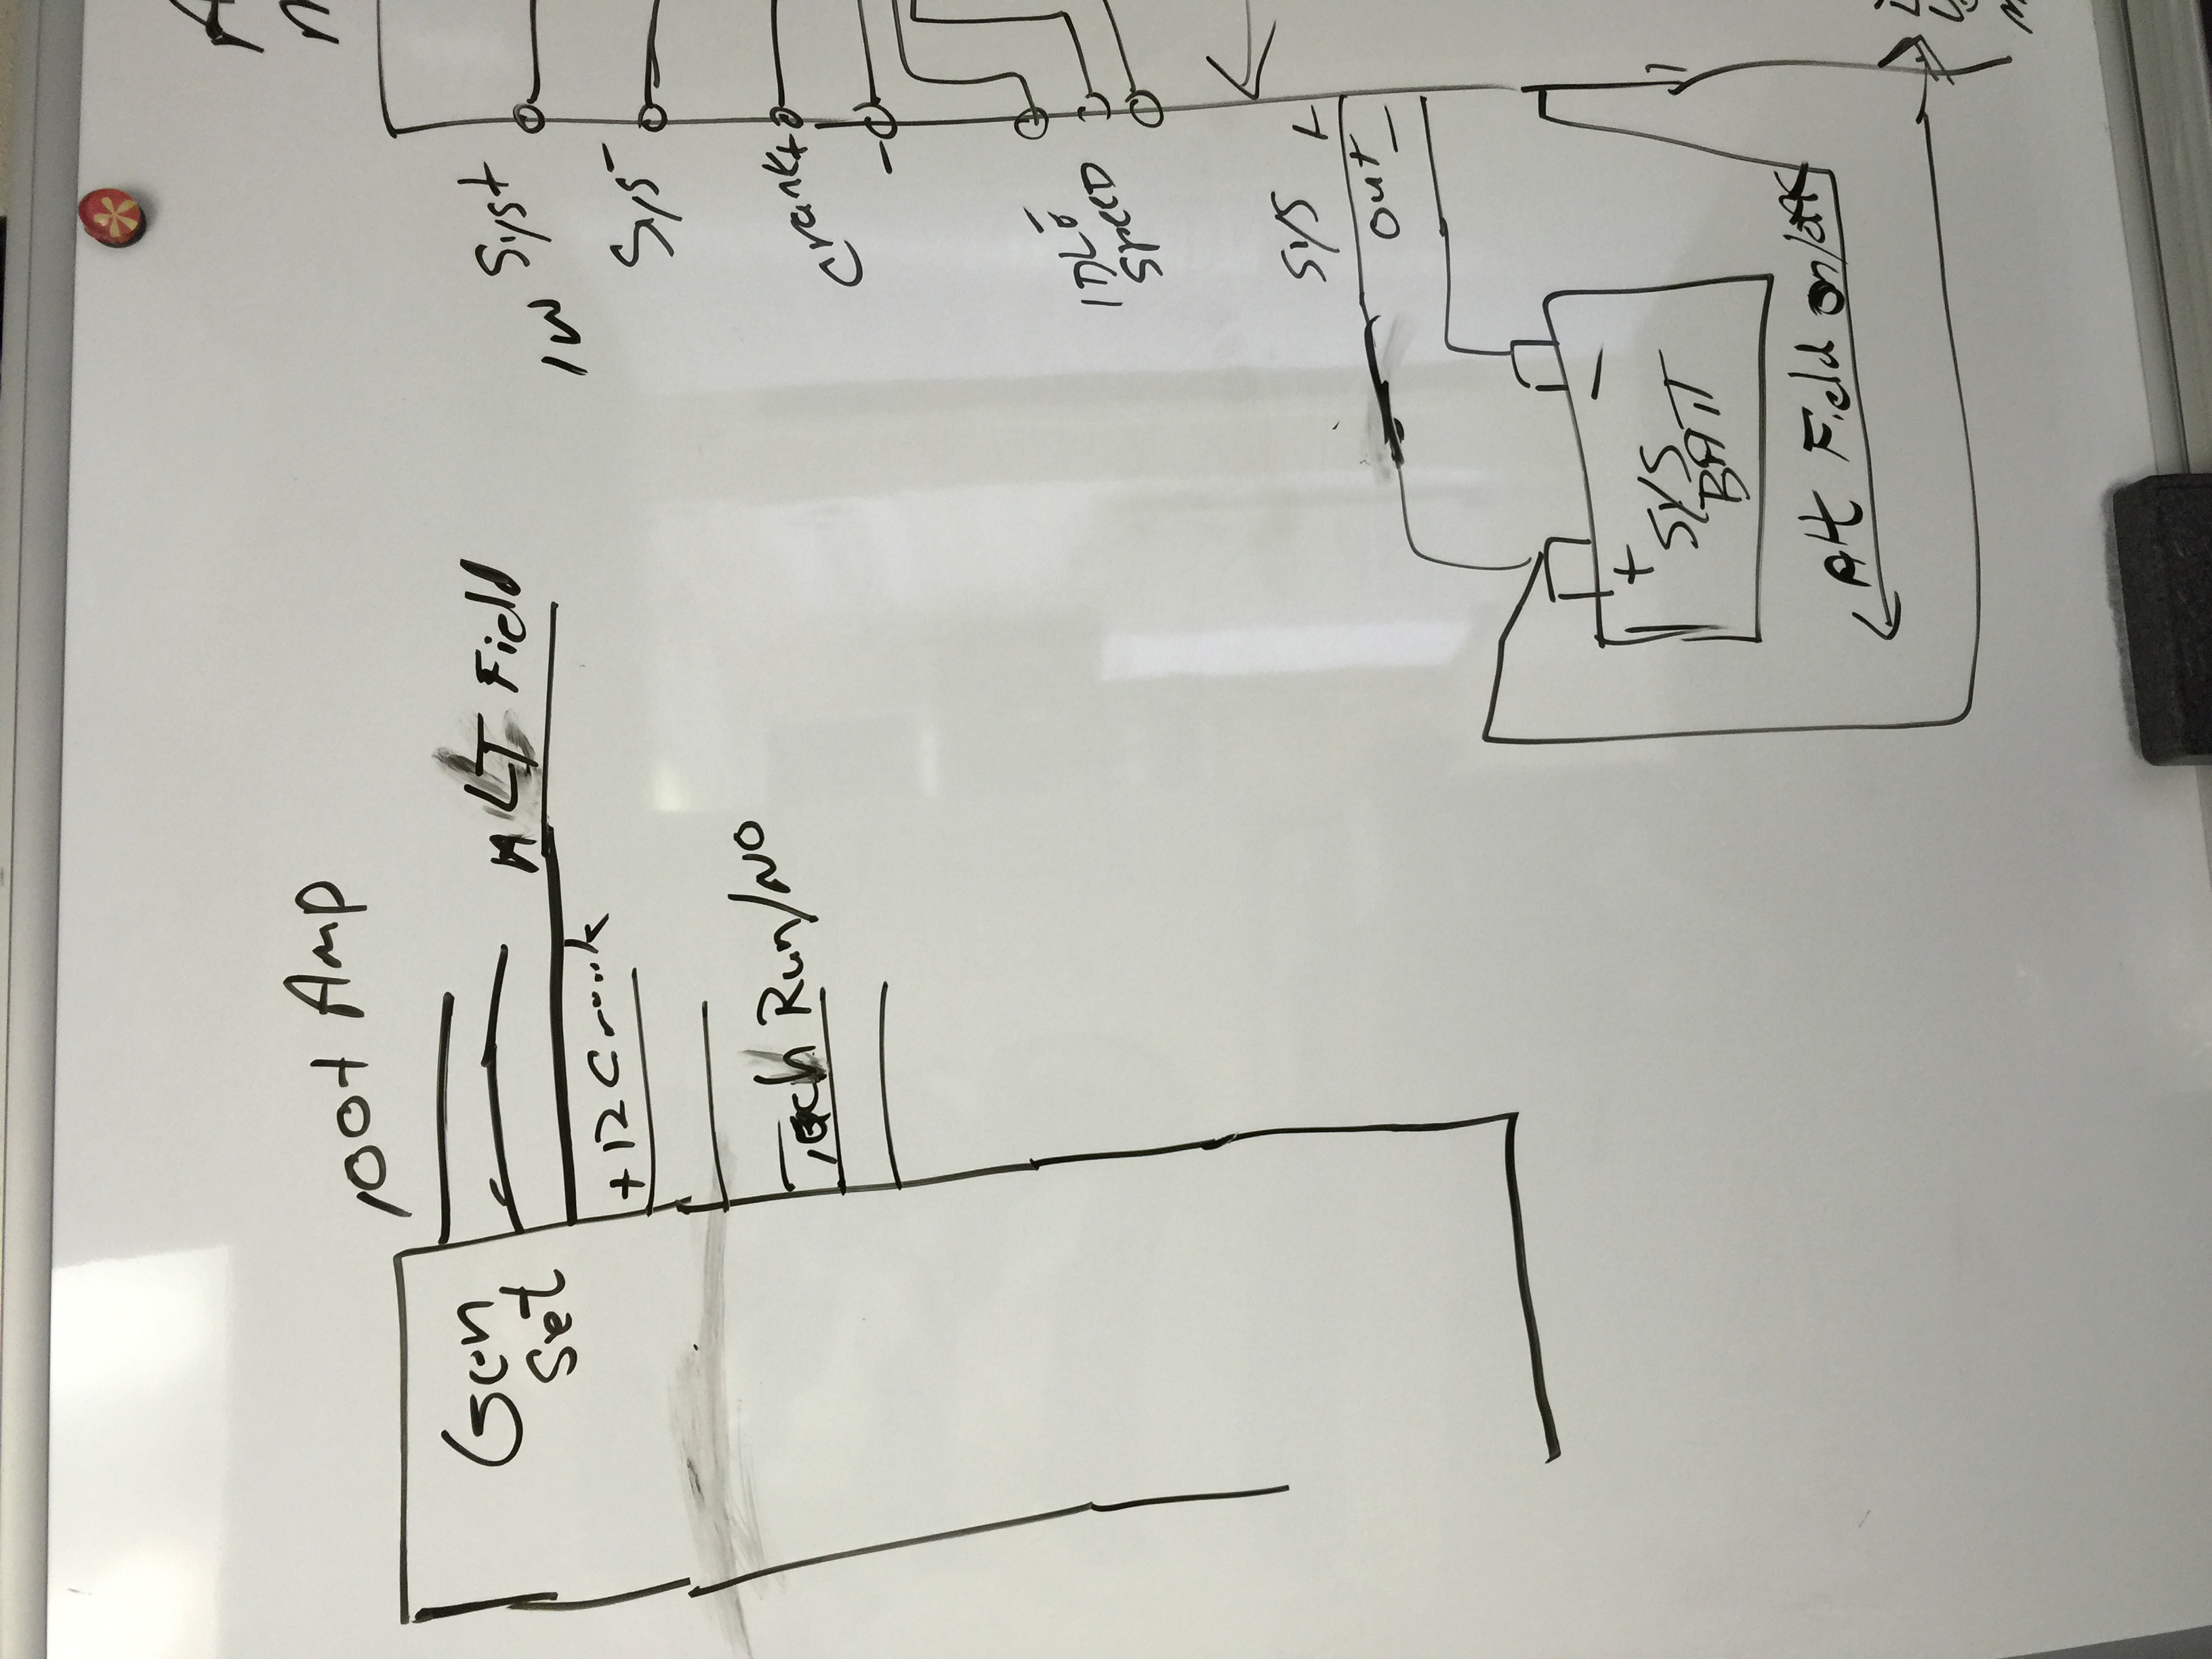 100+ Amp
Gen
Set
ALT Field
+12 Crank
Tach Run/NO
A
Sys+
IN
Sys-
Crank+
-
IDLE
SPEED
SYS +
Out -
+ -
SYS
BATT
Alt Field on/off